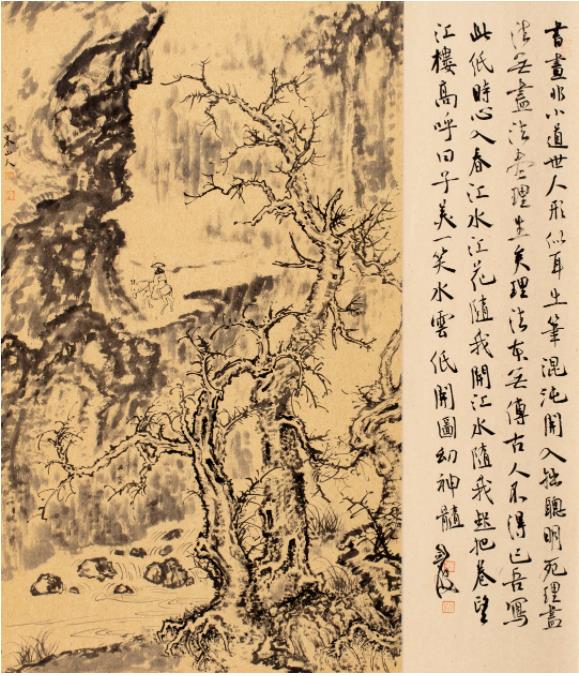 書畫非小道世人形似耳出筆混沌開入拙聰明死理盡
法無盡法盡理生矣理法本無傳古人不得已吾寫
此紙時心入春江水江花隨我開江水隨我起把卷望
江樓高呼曰子美一笑水雲低開圖幻神髓
山人